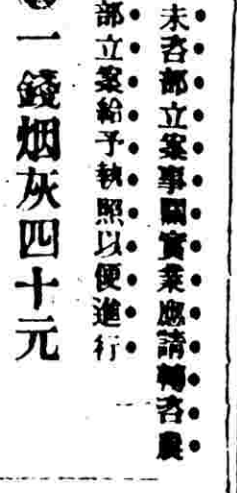 未咨部立案事關實業應請轉咨農
部立案給予執照以便進行
一錢烟灰四十元